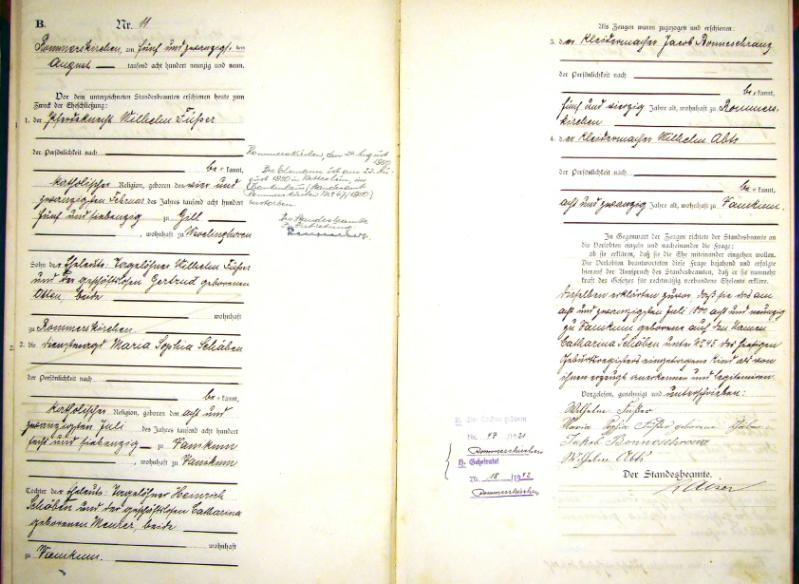 B.
Nr. 11
Rommerskirchen, am fünf und zwanzigsten
August tausend acht hundert neunzig und neun.
Vor dem unterzeichneten Standesbeamten erschienen heute zum
Zweck der Eheschließung:
1. der Pferdeknecht Wilhelm Füßer
der Persönlichkeit nach
be = kannt,
katholischer Religion, geboren den vier und
zwanzigsten Februar des Jahres tausend acht hundert
fünf und siebenzig zu Gill
, wohnhaft zu Wevelinghoven
Sohn der Eheleute: Tagelöhner Wilhelm Füßer
und der geschäftslosen Gertrud geborenen
Otten, beide
wohnhaft
zu Rommerskirchen.
2. die Dienstmagd Maria Sophia Schäben
der Persönlichkeit nach
be = kannt,
katholischer Religion, geboren den acht und
zwanzigsten Juli des Jahres tausend acht hundert
sechs und siebenzig zu Vanikum
, wohnhaft zu Vanikum
Tochter der Eheleute: Tagelöhner Heinrich
Schäben und der geschäftslosen Catharina
geborenen Meurer, beide
wohnhaft
zu Vanikum.
Rommerskirchen, den August
Der Ehemann ist am 22. Au-
gust 1950 in
(Standesamt
Rommerskirchen
verstorben
Der Standesbeamte
In Vertretung
Als Zeugen waren zugezogen und erschienen:
3. der Kleidermacher Jacob Bonneschranz
der Persönlichkeit nach
be = kannt,
fünf und vierzig Jahre alt, wohnhaft zu Rommers-
kirchen
4. der Kleidermacher Wilhelm Abts
der Persönlichkeit nach
be = kannt,
acht und zwanzig Jahre alt, wohnhaft zu Vanikum.
In Gegenwart der Zeugen richtete der Standesbeamte an
die Verlobten einzeln und nacheinander die Frage:
ob sie erklären, daß sie die Ehe miteinander eingehen wollen.
Die Verlobten beantworteten diese Frage bejahend und erfolgte
hierauf der Ausspruch des Standesbeamten, daß er sie nunmehr
kraft des Gesetzes für rechtmäßig verbundene Eheleute erkläre.
Dieselben erklärten zuvor, daß sie das am
acht und zwanzigsten Juli 1800 acht und neunzig
zu Vanikum geborene auf den Namen
Catharina Schäben unter No 45 des hiesigen
Geburtsregisters eingetragene Kind als von
ihnen erzeugt anerkennen und legitimiren.
Vorgelesen, genehmigt und unterschrieben:
Wilhelm Füßer
Maria Sophia Füßer geborene Schäben
Jakob Bonneschranz
Wilhelm Abts
Der Standesbeamte.
geboren
No. 17 1921
Rommerskirchen
B. Geheiratet
No. 18 1942
Rommerskirchen